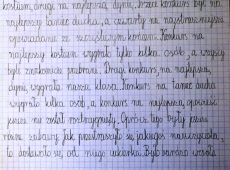 kostium, drugi na najlepszą dynię, trzeci konkurs był na
najlepszy taniec ducha, a czwarty na najstraszniejsze
opowiadanie ze szczęśliwym końcem. Konkurs na
najlepszy kostium wygrało tylko kilka osób, a wszyscy
byli znakomicie przebrani. Drugi konkurs, na najlepszą
dynię, wygrała nasza klasa. Konkurs na taniec ducha
wygrało kilka osób, a konkurs na najlepsze opowiadanie
jeszcze nie został rozstrzygnięty. Oprócz tego były jeszcze
różne zabawy. Jak przestraszyło się jakiegoś nauczyciela,
to dostawało się od niego cukierka. Było bardzo wesoło